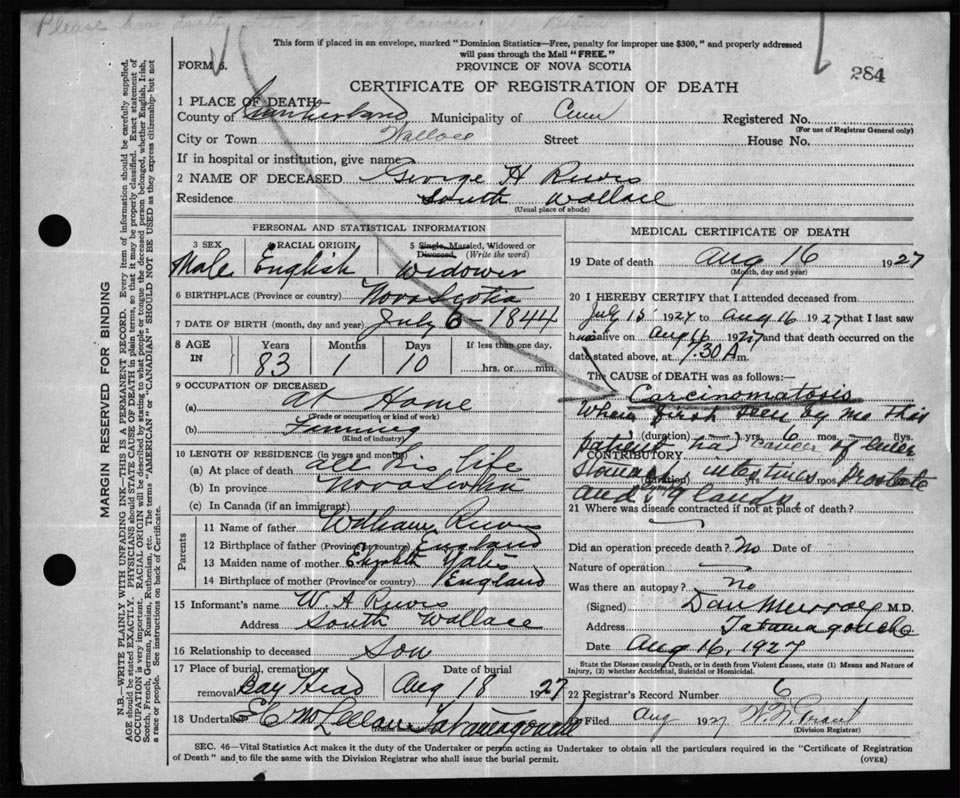 Please
This form if placed in an envelope, marked "Dominion Statistics—Free, penalty for improper use $300," and properly addressed
will pass through the Mail "FREE."
FORM 6.
PROVINCE OF NOVA SCOTIA
284
CERTIFICATE OF REGISTRATION OF DEATH
1 PLACE OF DEATH:
County of Cumberland Municipality of Cum Registered No.
(For use of Registrar General only)
City or Town Wallace Street House No.
If in hospital or institution, give name
2 NAME OF DECEASED George H
Residence South Wallace
(Usual place of abode)
PERSONAL AND STATISTICAL INFORMATION
3 SEX
Male
RACIAL ORIGIN
English
5 Single, Married, Widowed or
Divorced (Write the word)
Widower
6 BIRTHPLACE (Province or country) Nova Scotia
7 DATE OF BIRTH (month, day and year) July 6 - 1844
8 AGE IN Years Months Days If less than one day,
83 1 10 hrs. or min.
9 OCCUPATION OF DECEASED
(a) at Home
(Trade or occupation or kind of work)
(b)
(Kind of industry)
10 LENGTH OF RESIDENCE (in years and months)
(a) At place of death all his life
(b) In province Nova Scotia
(c) In Canada (if an immigrant)
Parents
11 Name of father William
12 Birthplace of father (Province or country) England
13 Maiden name of mother
14 Birthplace of mother (Province or country) England
15 Informant's name W A
Address South Wallace
16 Relationship to deceased Son
17 Place of burial, cremation or Date of burial
removal Bay Head Aug 18 1927
18 Undertaker E C McLellan Tatamagouche
(Name and address)
MEDICAL CERTIFICATE OF DEATH
19 Date of death Aug 16 1927
(Month, day and year)
20 I HEREBY CERTIFY that I attended deceased from
July 15 1927 to Aug 16 1927 that I last saw
h alive on Aug 16 1927 and that death occurred on the
date stated above, at 7.30 A m.
The CAUSE of DEATH was as follows:—
Carcinomatosis
When first seen by me this
(duration) yrs. 6 mos. dys.
patient had cancer of liver
CONTRIBUTORY
stomach, intestines, prostate
(duration) yrs. mos.
and glands
21 Where was disease contracted if not at place of death?
Did an operation precede death? No Date of
Nature of operation
Was there an autopsy? No
(Signed) Dan M.D.
Address Tatamagouche
Date Aug 16, 1927
State the Disease causing Death, or in death from Violent Causes, state (1) Means and Nature of
Injury, (2) whether Accidental, Suicidal or Homicidal.
22 Registrar's Record Number 6
Filed Aug 1927
(Division Registrar)
SEC. 46—Vital Statistics Act makes it the duty of the Undertaker or person acting as Undertaker to obtain all the particulars required in the "Certificate of Registration
of Death" and to file the same with the Division Registrar who shall issue the burial permit.
(OVER)
MARGIN RESERVED FOR BINDING
N.B.—WRITE PLAINLY WITH UNFADING INK—THIS IS A PERMANENT RECORD. Every item of information should be carefully supplied.
AGE should be stated EXACTLY. PHYSICIANS should STATE CAUSE OF DEATH in plain terms, so that it may be properly classified. Exact statement of
OCCUPATION is very important. RACIAL ORIGIN will be described by stating to what people or tongue the deceased person belonged, whether English, Irish,
Scotch, French, German, Russian, Ruthenian, etc. The terms "AMERICAN" or "CANADIAN" SHOULD NOT BE USED as they express citizenship but not
a race or people. See instructions on back of Certificate.